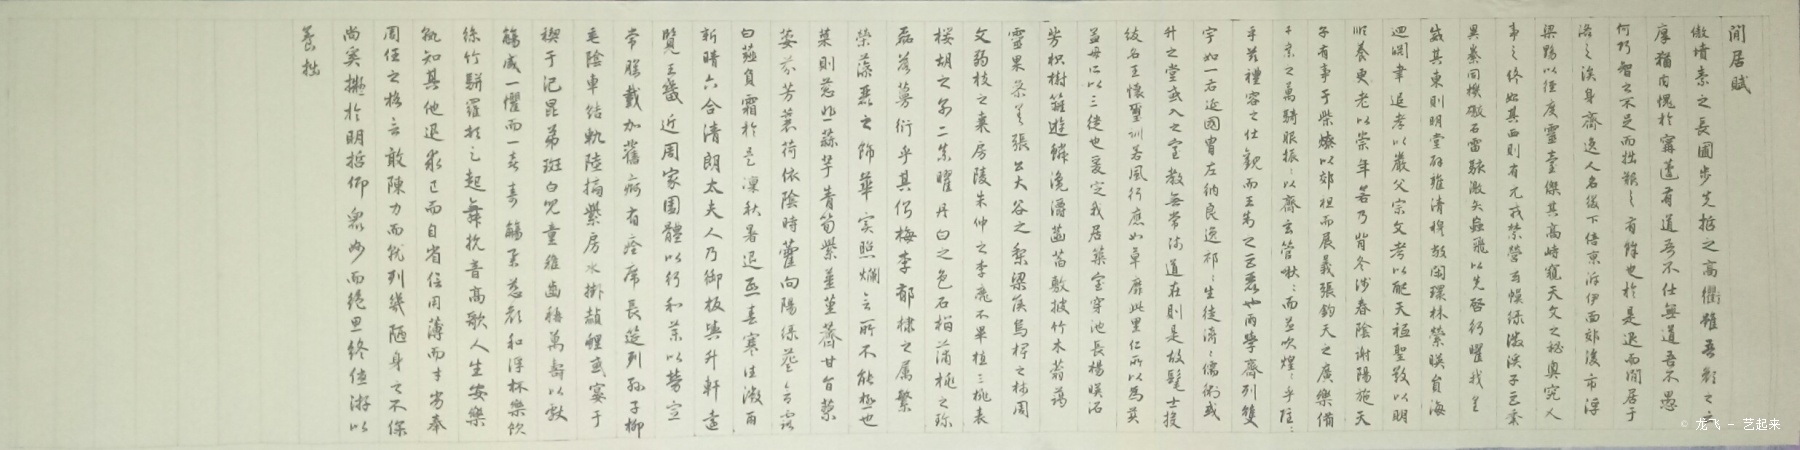 閒居賦
傲墳素之長圃步先哲之高衢雖吾顏之云
厚猶內愧於甯蘧有道吾不仕無道吾不愚
何巧智之不足而拙艱之有餘也於是退而閒居于
洛之涘身齊逸人名綴下士陪京泝伊面郊後市浮
梁黝以徑度靈臺傑其高峙窺天文之秘奧究人
事之終始其西則有元戎禁營玄幙綠徽谿子巨黍
異絭同機礮石雷駭激矢蝱飛以先啓行曜我皇
威其東則明堂辟雍清穆敞閑環林縈映圓海
迴淵聿追孝以嚴父宗文考以配天秪聖敬以明
順養更老以崇年若乃背冬涉春陰謝陽施天
子有事于柴燎以郊祖而展義張鈞天之廣樂備
千乘之萬騎服振振以齊玄管啾啾而並吹煌煌乎隱隱
乎茲禮容之壯觀而王制之巨麗也兩學齊列雙
宇如一右延國胄左納良逸祁祁生徒濟濟儒術或
升之堂或入之室教無常師道在則是故髦士投
紱名王懷璽訓若風行應如草靡此里仁所以為美
孟母所以三徙也爰定我居築室穿池長楊映沼
芳枳樹籬遊鱗瀺灂菡萏敷披竹木蓊藹
靈果參差張公大谷之梨梁侯烏椑之柿周
文弱枝之棗房陵朱仲之李靡不畢植三桃表
櫻胡之別二柰曜丹白之色石榴蒲桃之珍
磊落蔓衍乎其側梅李郁棣之屬繁
榮藻麗之飾華實照爛言所不能極也
菜則葱韭蒜芋青筍紫薑堇薺甘旨蓼
荽芬芳蘘荷依陰時藿向陽綠葵含露
白薤負霜於是凜秋暑退熙春寒往微雨
新晴六合清朗太夫人乃御板輿升軒遠
覽王畿近周家園體以行和藥以勞宣
常膳載加舊痾有痊席長筵列孫子柳
垂陰車結軌陸摘紫房水掛赬鯉或宴于
禊于汜昆弟斑白兒童稚齒稱萬壽以獻
觴咸一懼而一喜壽觴舉慈顏和浮杯樂飲
絲竹駢羅頓足起舞抗音高歌人生安樂
孰知其他退求己而自省信用薄而才劣奉
周任之格言敢陳力而就列幾陋身之不保
尚奚擬於明哲仰衆妙而絕思終優游以
養拙
© 龙飞 - 艺起来